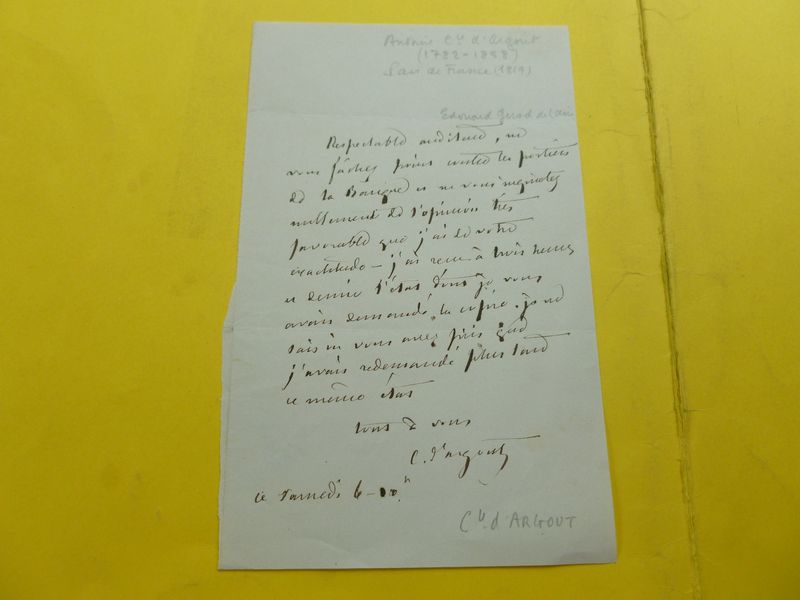 Antoine Cte d'Argout
(1782-1858)
Pair de France (1819)
Edouard Girod de l'Ain
Respectable auditeur, ne
vous fâchez point contre les portiers
de la Banque et ne vous inquiétez
nullement de l'opinion très
favorable que j'ai de votre
exactitude - j'ai reçu à trois heures
et demie l'état dont je vous
avais demandé la copie. je ne
sais où vous avez pris que
j'avais redemandé plus tard
ce même état
tout à vous
C. d'argout
ce samedi 6 -
Cte d'ARGOUT